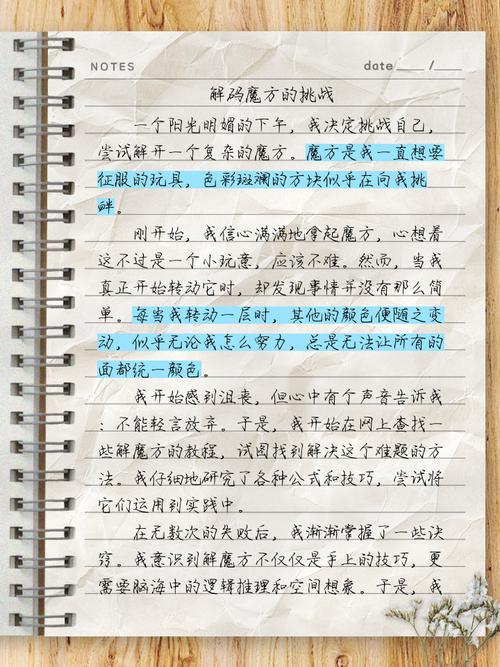 NOTES
date ____ / ____
解码魔方的挑战
一个阳光明媚的下午，我决定挑战自己，
尝试解开一个复杂的魔方。魔方是我一直想要
征服的玩具，色彩斑斓的方块似乎在向我挑
衅。
刚开始，我信心满满地拿起魔方，心想着
这不过是一个小玩意，应该不难。然而，当我
真正开始转动它时，却发现事情并没有那么简
单。每当我转动一层时，其他的颜色便随之变
动，似乎无论我怎么努力，总是无法让所有的
面都统一颜色。
我开始感到沮丧，但心中有个声音告诉我
：不能轻言放弃。于是，我开始在网上查找一
些解魔方的教程，试图找到解决这个难题的方
法。我仔细地研究了各种公式和技巧，尝试将
它们运用到实践中。
在无数次的失败后，我渐渐掌握了一些诀
窍。我意识到解魔方不仅仅是手上的技巧，更
需要脑海中的逻辑推理和空间想象。于是，我